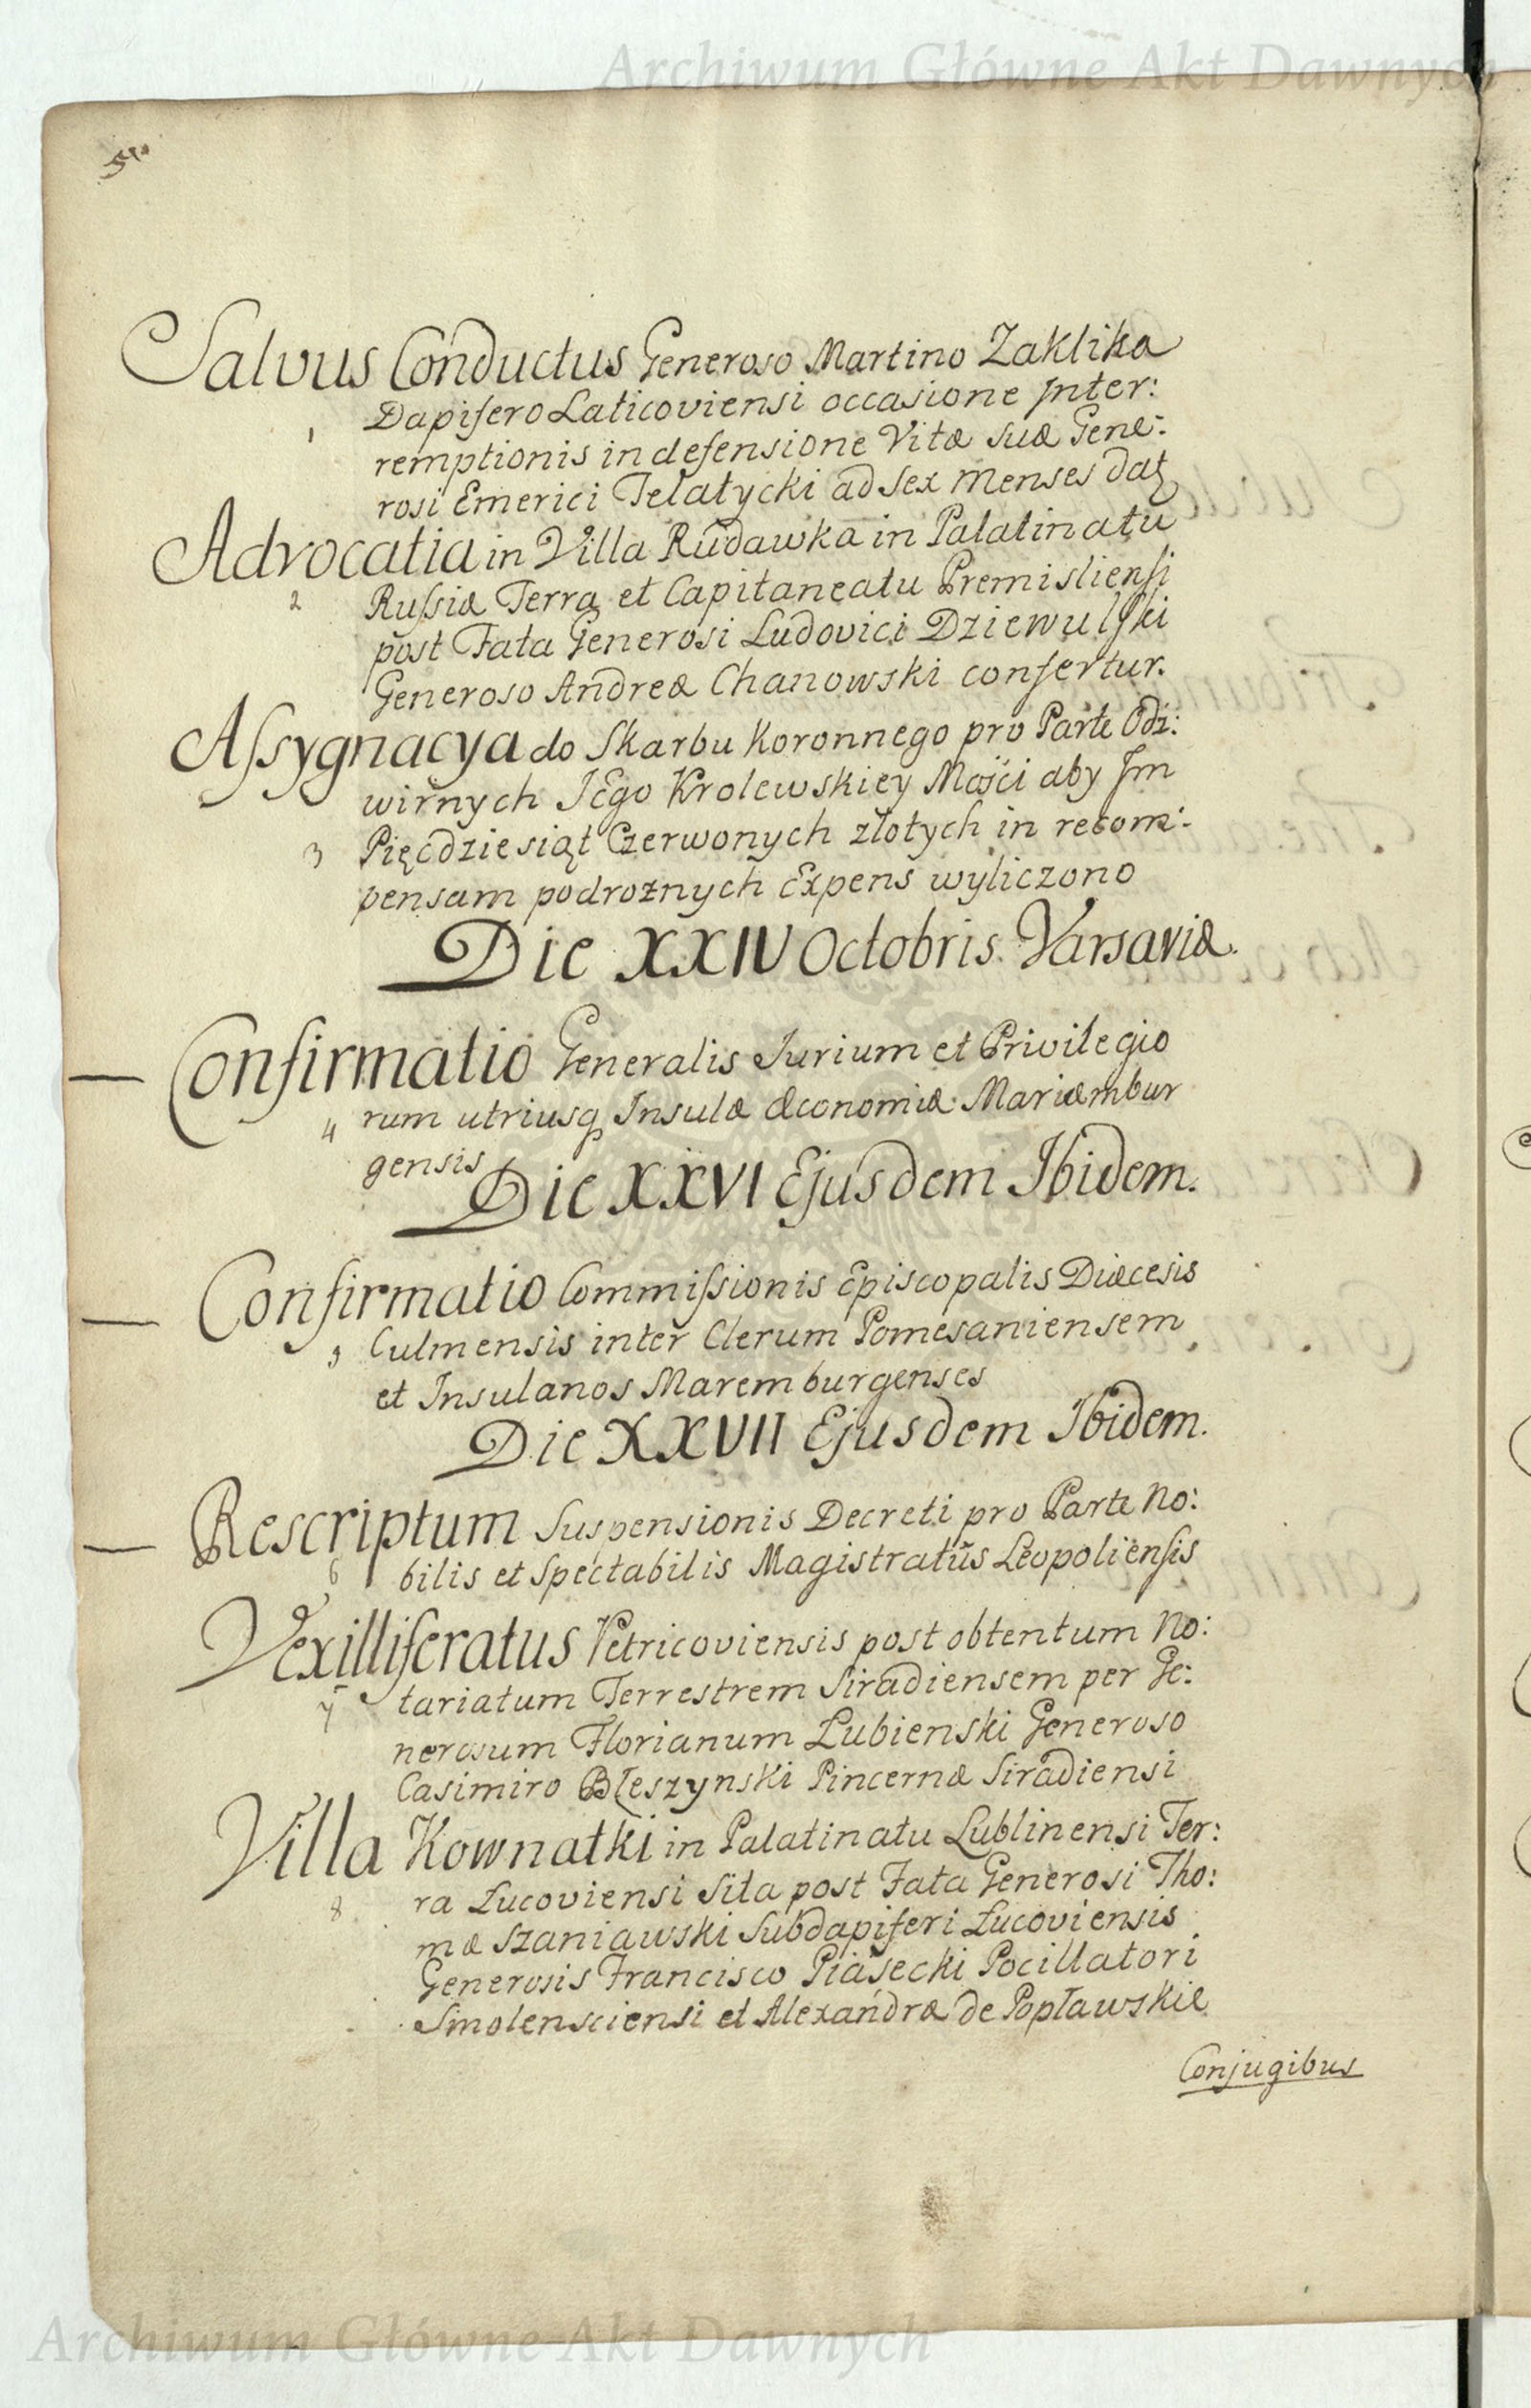 Archiwum Główne Akt Dawnych
Salvus Conductus Generoso Martino Zaklika
Dapifero Laticoviensi occasione Inter:
1
remptionis in defensione Vitæ suæ Gene:
rosi Emerici Telatycki ad sex Menses datę
Advocatia in Villa Rudawka in Palatinatu
2
Russiæ Terrę et Capitaneatu Premisliensi
post Fata Generosi Ludovici Dziewulski
Generoso Andreæ Chanowski confertur.
Assygnacya do Skarbu Koronnego pro Parte Odź:
wirnych JEgo Krolewskiey Mości aby Jm
3 Pięćdziesiąt Czerwonych złotych in recom:
pensam podrożnych Expens wyliczono
Die XXIV Octobris Varsaviæ.
Confirmatio Generalis Jurium et Privilegio
4 rum utriusq Insulæ Æconomiæ Mariæmbur
gensis
Die XXVI Ejusdem Ibidem.
Confirmatio Commissionis Episcopalis Diæcesis
5 Culmensis inter Clerum Pomesaniensem
et Insulanos Maremburgenses
Die XXVII Ejusdem Ibidem.
Rescriptum Suspensionis Decreti pro Parte No:
6 bilis et Spectabilis Magistratûs Leopoliensis
Vexilliferatus Petricoviensis post obtentum No:
7 tariatum Terrestrem Siradiensem per Ge:
nerosum Florianum Łubienski Generoso
Casimiro Błeszynski Pincernæ Siradiensi
Villa Kownatki in Palatinatu Lublinensi Ter:
8 ra Łucoviensi Sita post Fata Generosi Tho:
mæ Szaniawski Subdapiferi Łucoviensis
Generosis Francisco Piasecki Pocillatori
Smolensciensi et Alexandræ de Popławskie
Conjugibus
Archiwum Główne Akt Dawnych